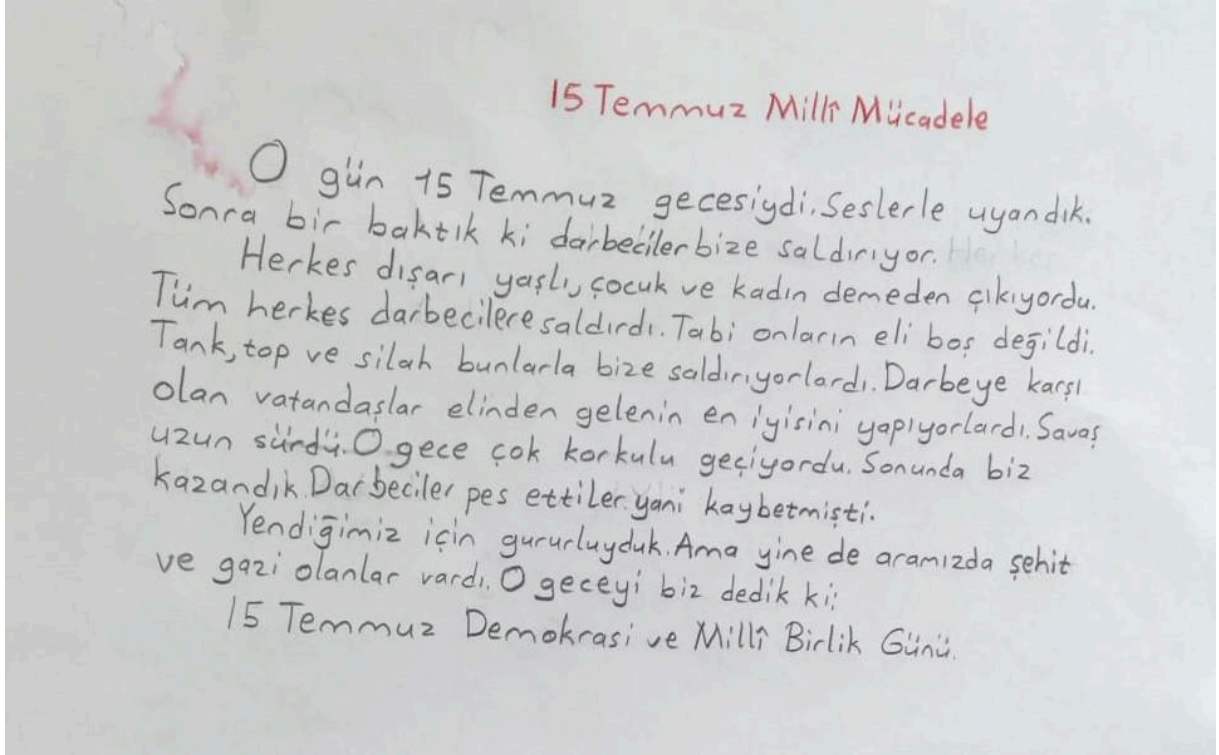 15 Temmuz Millî Mücadele
O gün 15 Temmuz gecesiydi. Seslerle uyandık.
Sonra bir baktık ki darbeciler bize saldırıyor.
Herkes dışarı yaşlı, çocuk ve kadın demeden çıkıyordu.
Tüm herkes darbecilere saldırdı. Tabi onların eli boş değildi.
Tank, top ve silah bunlarla bize saldırıyorlardı. Darbeye karşı
olan vatandaşlar elinden gelenin en iyisini yapıyorlardı. Savaş
uzun sürdü. O gece çok korkulu geçiyordu. Sonunda biz
kazandık. Darbeciler pes ettiler yani kaybetmişti.
Yendiğimiz için gururluyduk. Ama yine de aramızda şehit
ve gazi olanlar vardı. O geceyi biz dedik ki;
15 Temmuz Demokrasi ve Millî Birlik Günü.